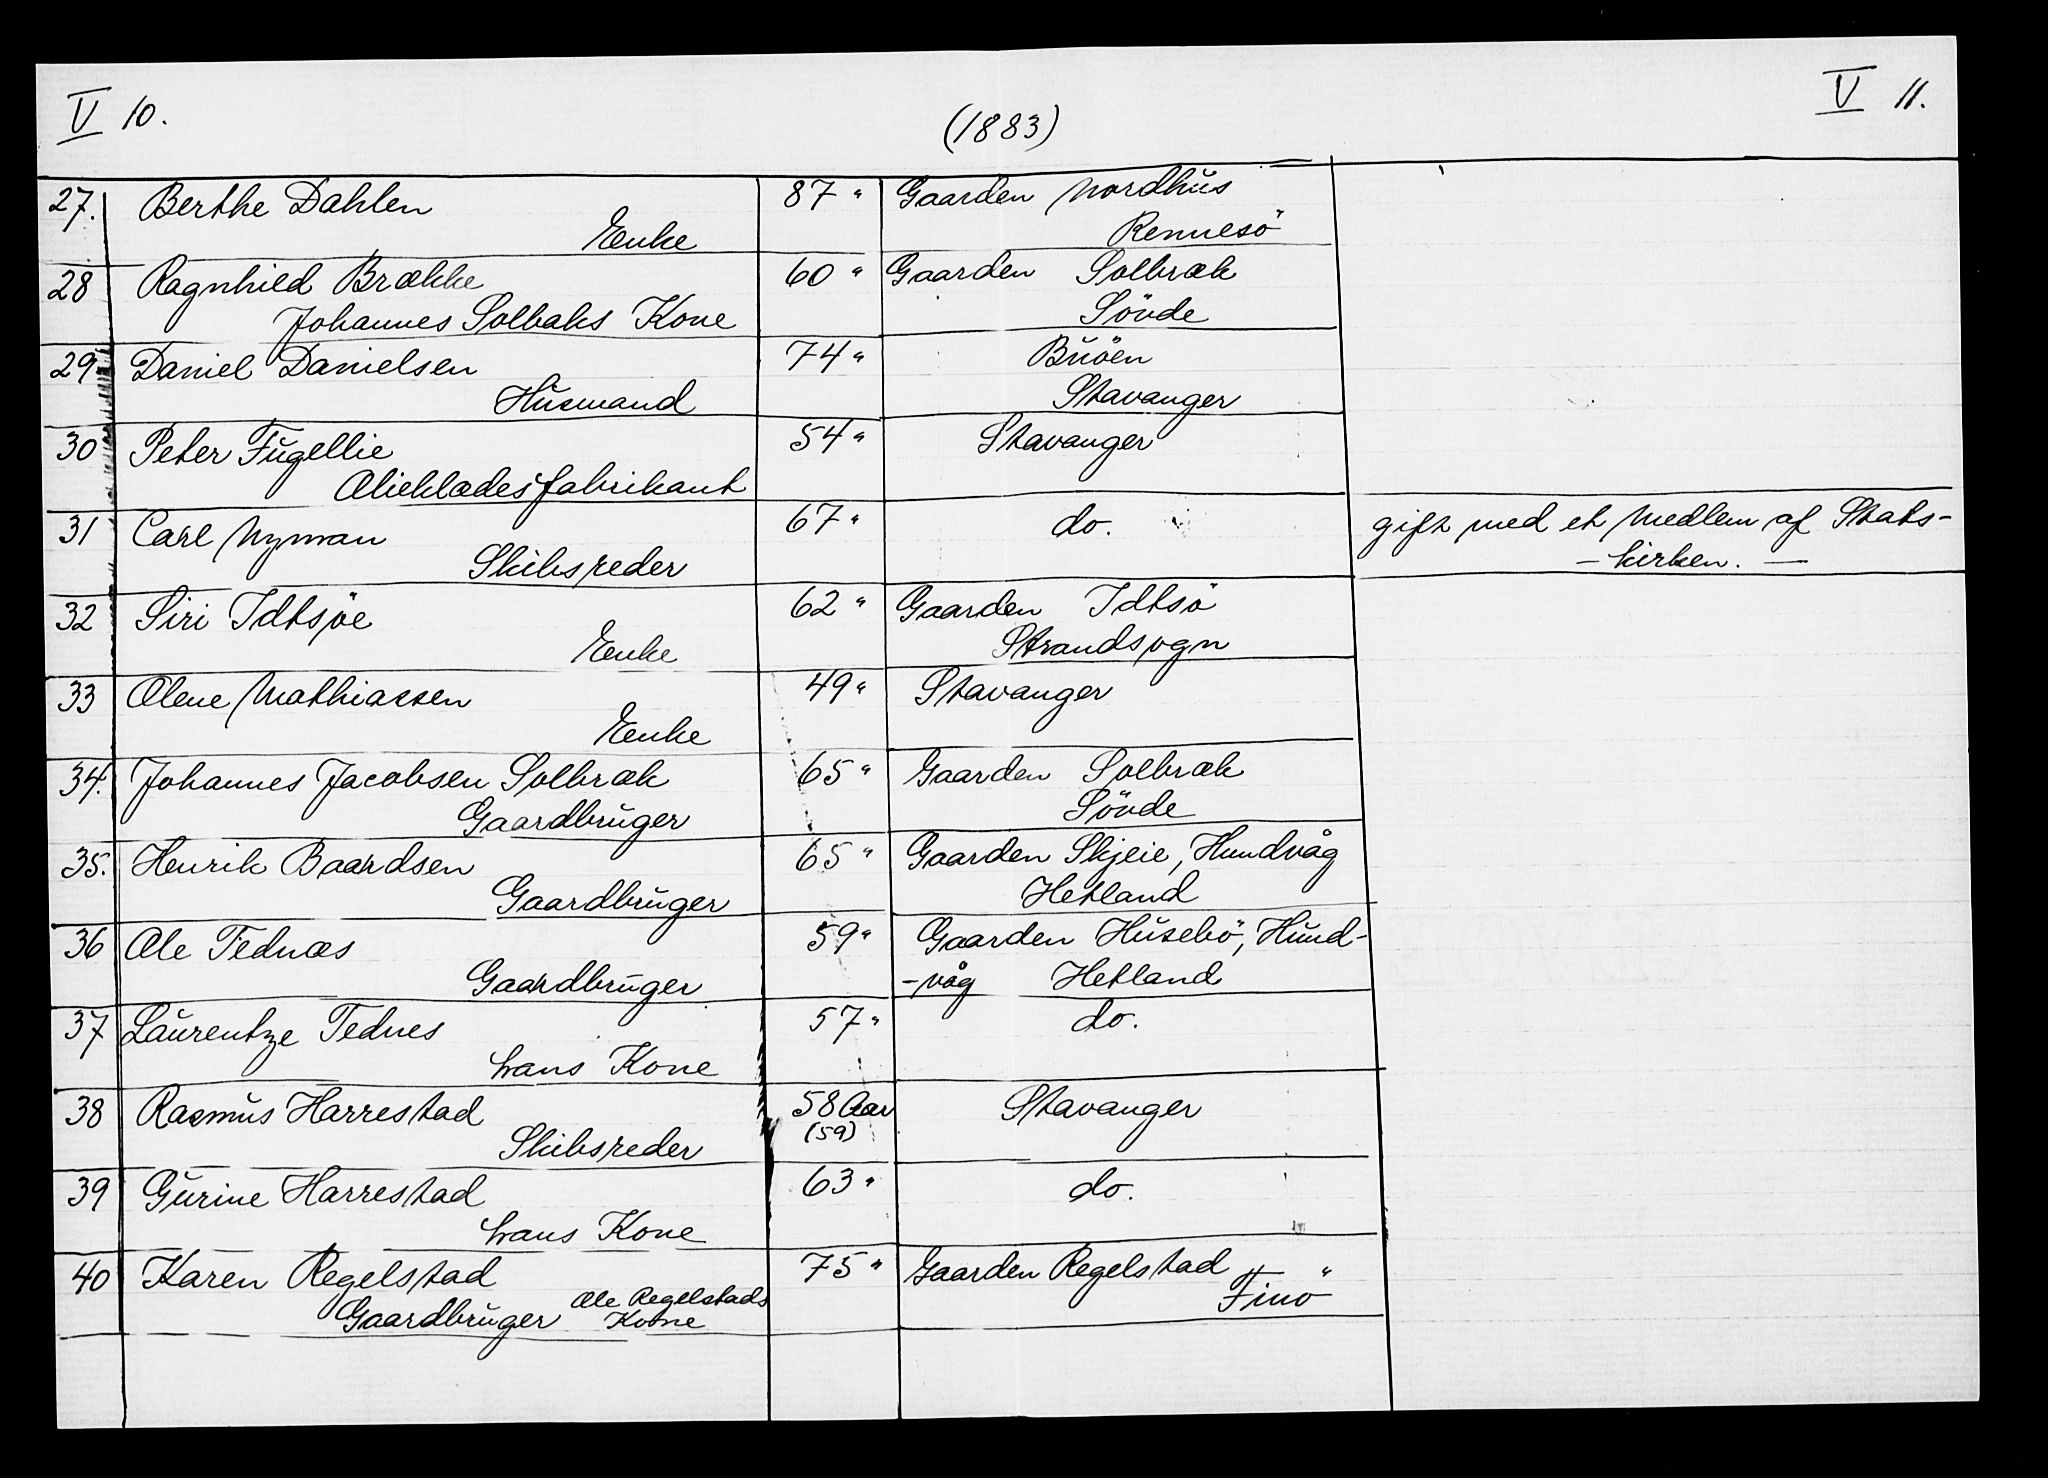 V 10. (1883) V 11.
27. Berthe Dahlen 87 " Gaarden Nordhus
Enke Rennesö
28 Ragnhild Brække 60 " Gaarden Solbræk
Johannes Solbaks Kone Sövde
29 Daniel Danielsen 74 " Buöen
Husmand Stavanger
30 Peter Fugellie 54 " Stavanger
Oliekladesfabrikant
31 Carl Nyman 67 " do. gift med et Medlem af Stats-
Skibsreder - kirken. -
32 Siri Idtsöe 62 " Gaarden Idtsö
Enke Strandsogn
33 Olene Mathiassen 49 " Stavanger
Enke
34. Johannes Jacobsen Solbræk 65 " Gaarden Solbræk
Gaardbruger Sövde
35. Henrik Baardsen 65 " Gaarden Skjeie, Hundvåg
Gaardbruger Hetland
36 Ole Tednæs 59 " Gaarden Husebö, Hund-
Gaardbruger -våg Hetland
37 Laurentze Tednes 57 " do.
hans Kone
38 Rasmus Harrestad 58 Aar Stavanger
Skibsreder (59)
39 Gurine Harrestad 63 " do.
hans Kone
40 Karen Regelstad 75 " Gaarden Regelstad
Gaardbruger Ole Regelstads Finö
Kone